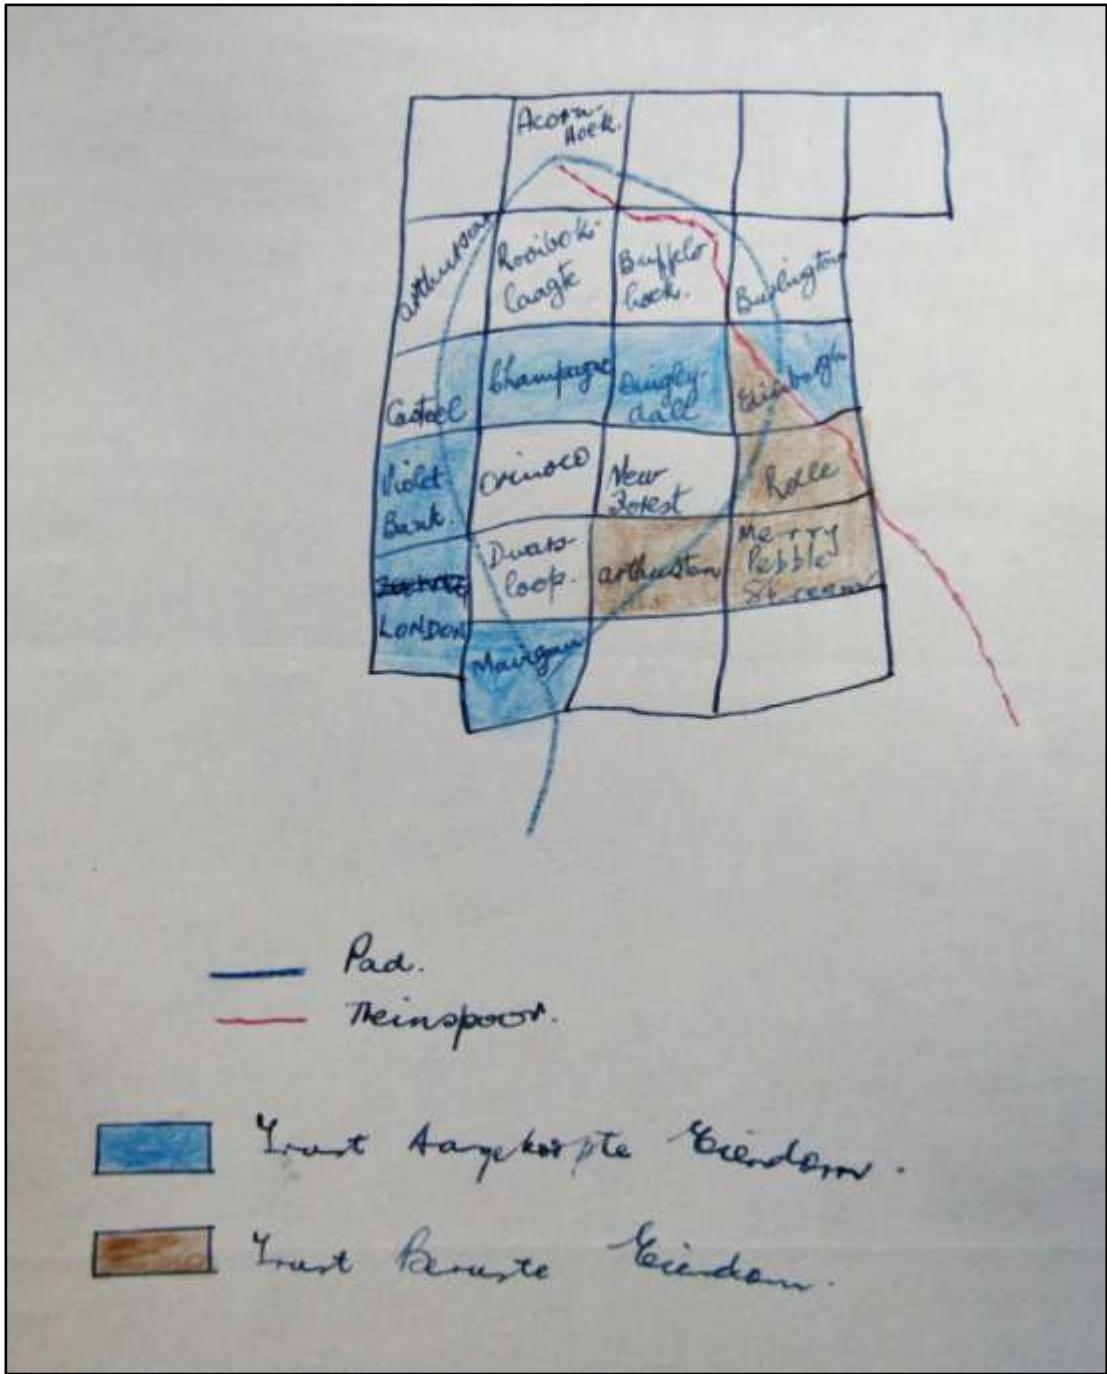 Acorn-
Hoek.
arthurseat
Rooibok-
laagte
Buffelo
hoek.
Burlington
Casteel
Champagne
Quigly-
dall
Edinborgh
Violet
Bank.
Orinoco
New
Forest
Rolle
LONDON
Dwars-
loop.
arthurston
Merry
Pebble
Stream
Mavigau
Pad.
Treinspoor.
Trust Aagekoopte Eiendom.
Trust Beruste Eiendom.